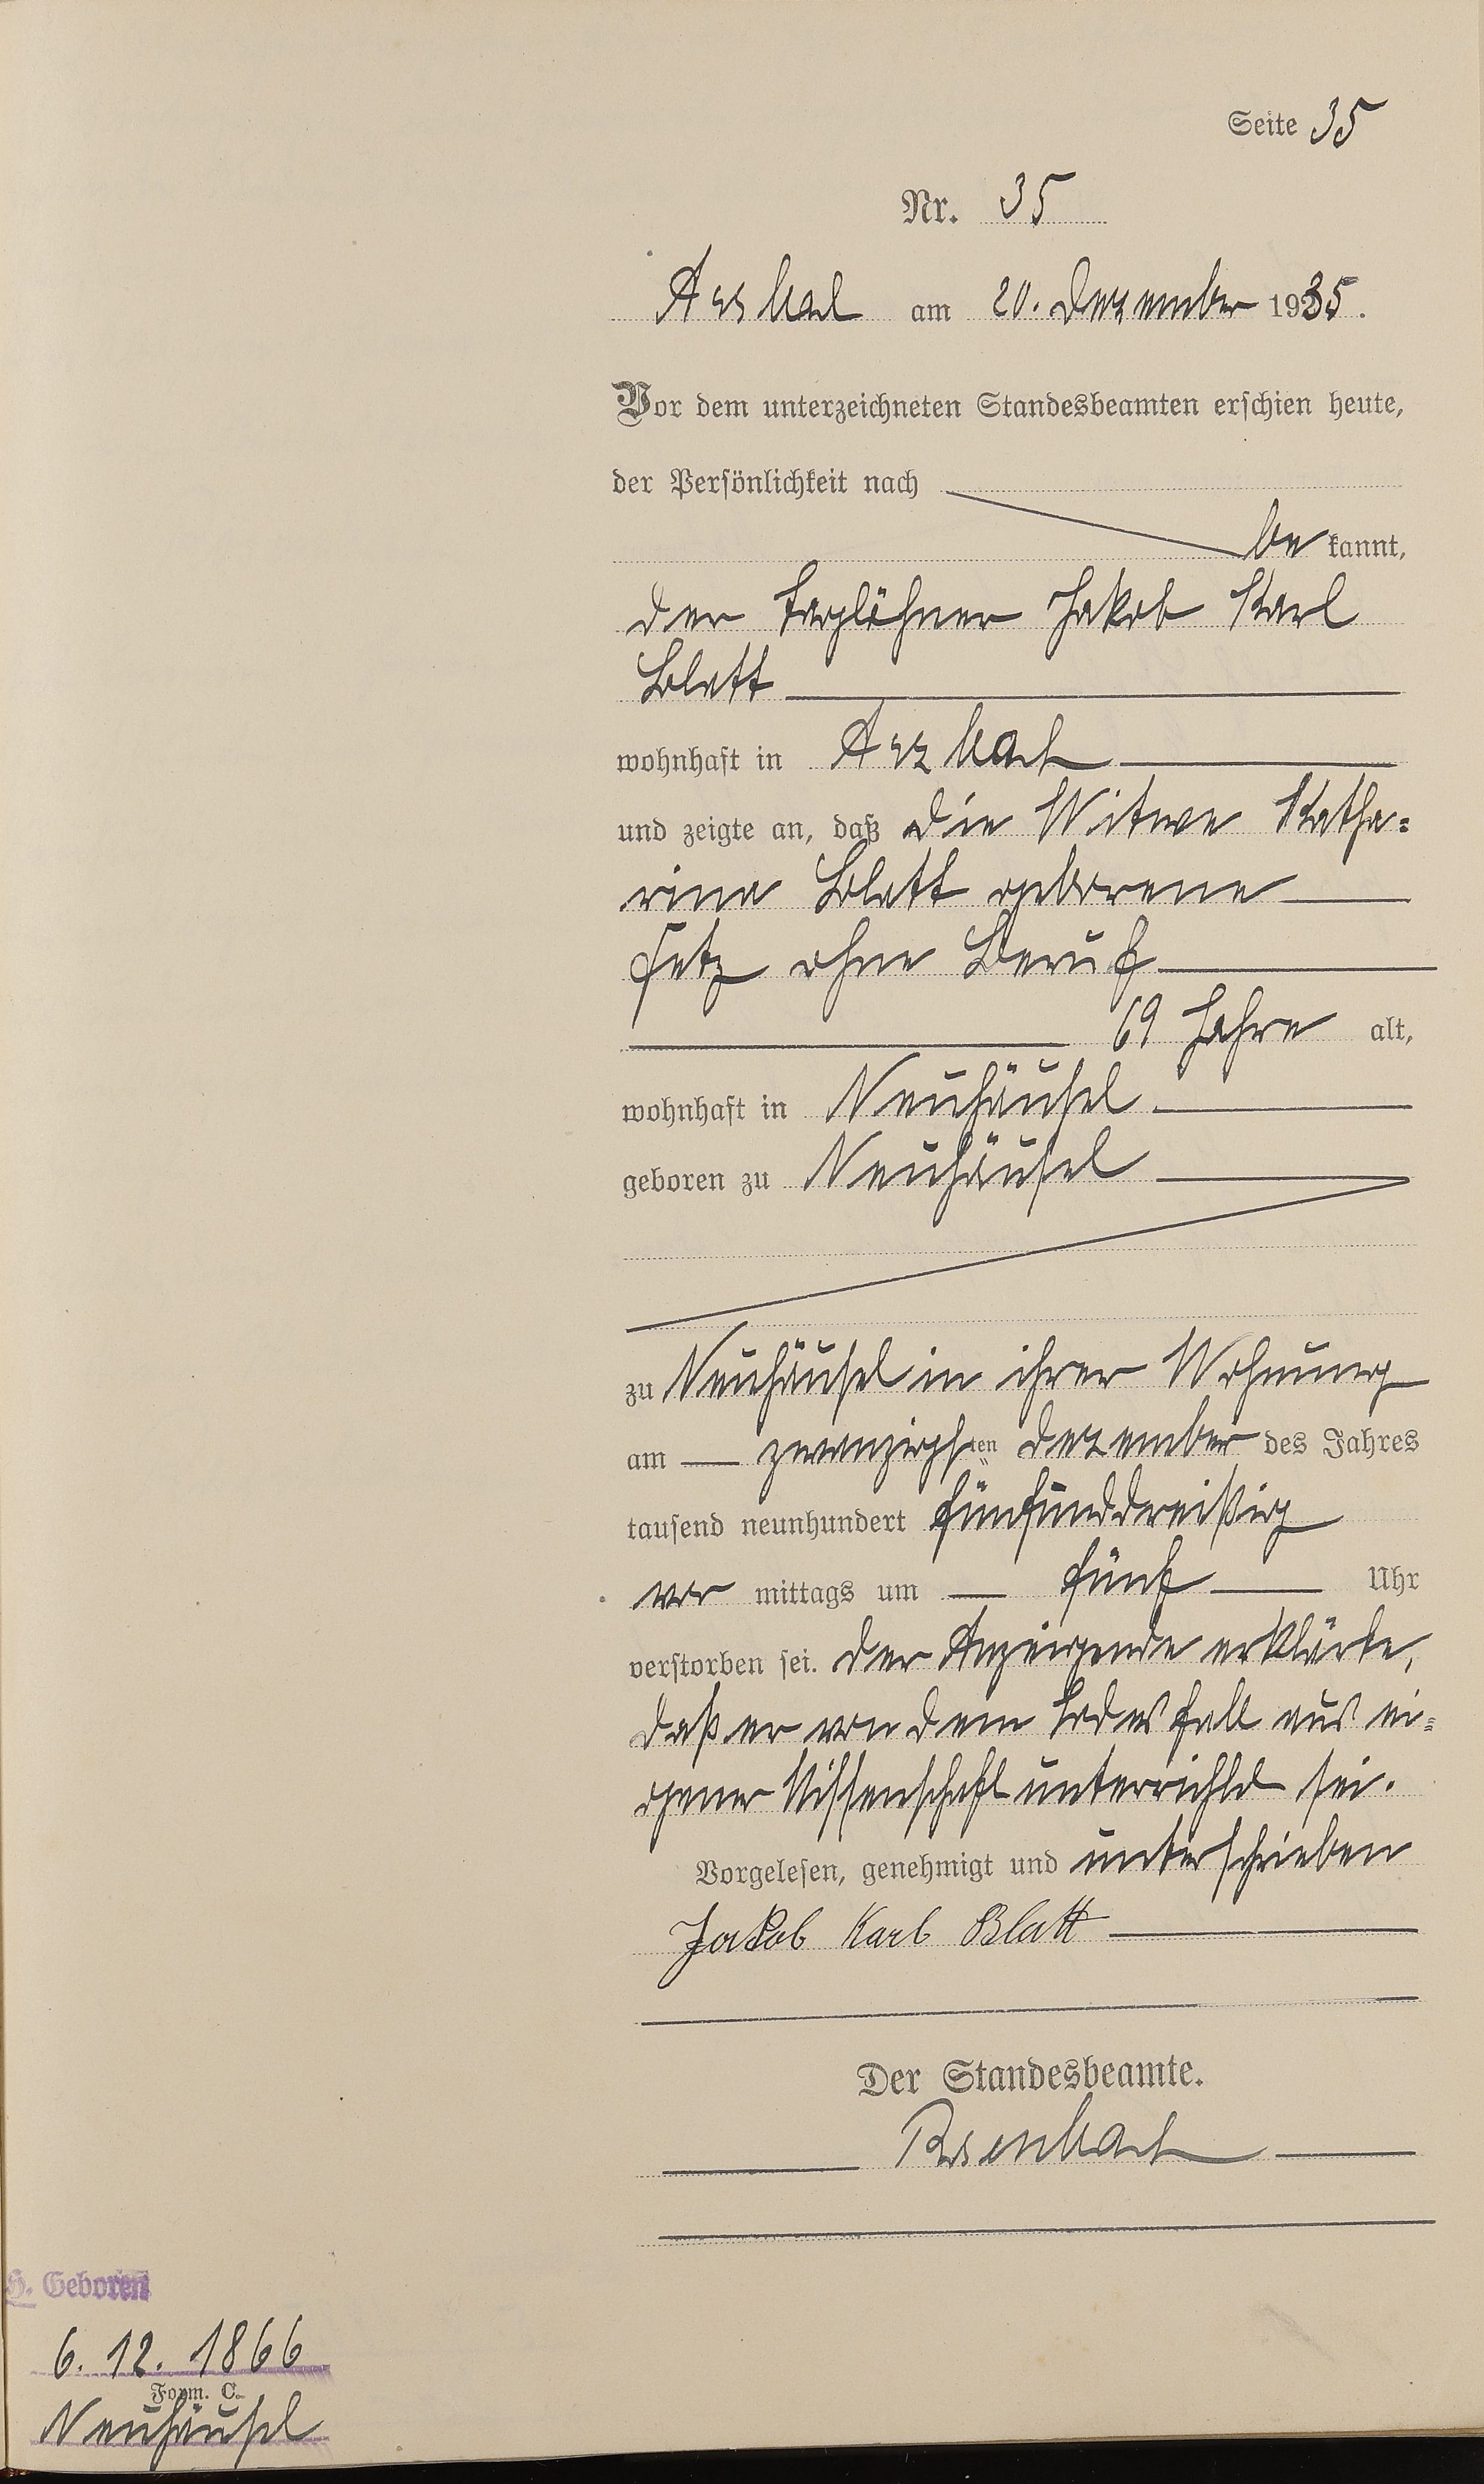 Seite 35
Nr. 35
Arzbach am 20. Dezember 1935.
Vor dem unterzeichneten Standesbeamten erschien heute,
der Persönlichkeit nach
be kannt,
der Taglöhner Jakob Karl
Blatt
wohnhaft in Arzbach
und zeigte an, daß die Witwe Katha=
rina Blatt geborene
Fetz ohne Beruf
69 Jahre alt,
wohnhaft in Neuhäusel
geboren zu Neuhäusel
zu Neuhäusel in ihrer Wohnung
am zwanzigsten Dezember des Jahres
tausend neunhundert fünfunddreißig
vor mittags um fünf Uhr
verstorben sei. Der Anzeigende erklärte,
daß er von dem Todesfall aus ei=
gener Wissenschaft unterrichtet sei.
Vorgelesen, genehmigt und unterschrieben
Jakob Karl Blatt
Der Standesbeamte.
Rosenbach
H. Geboren
6. 12. 1866
Form. C.
Neuhäusel